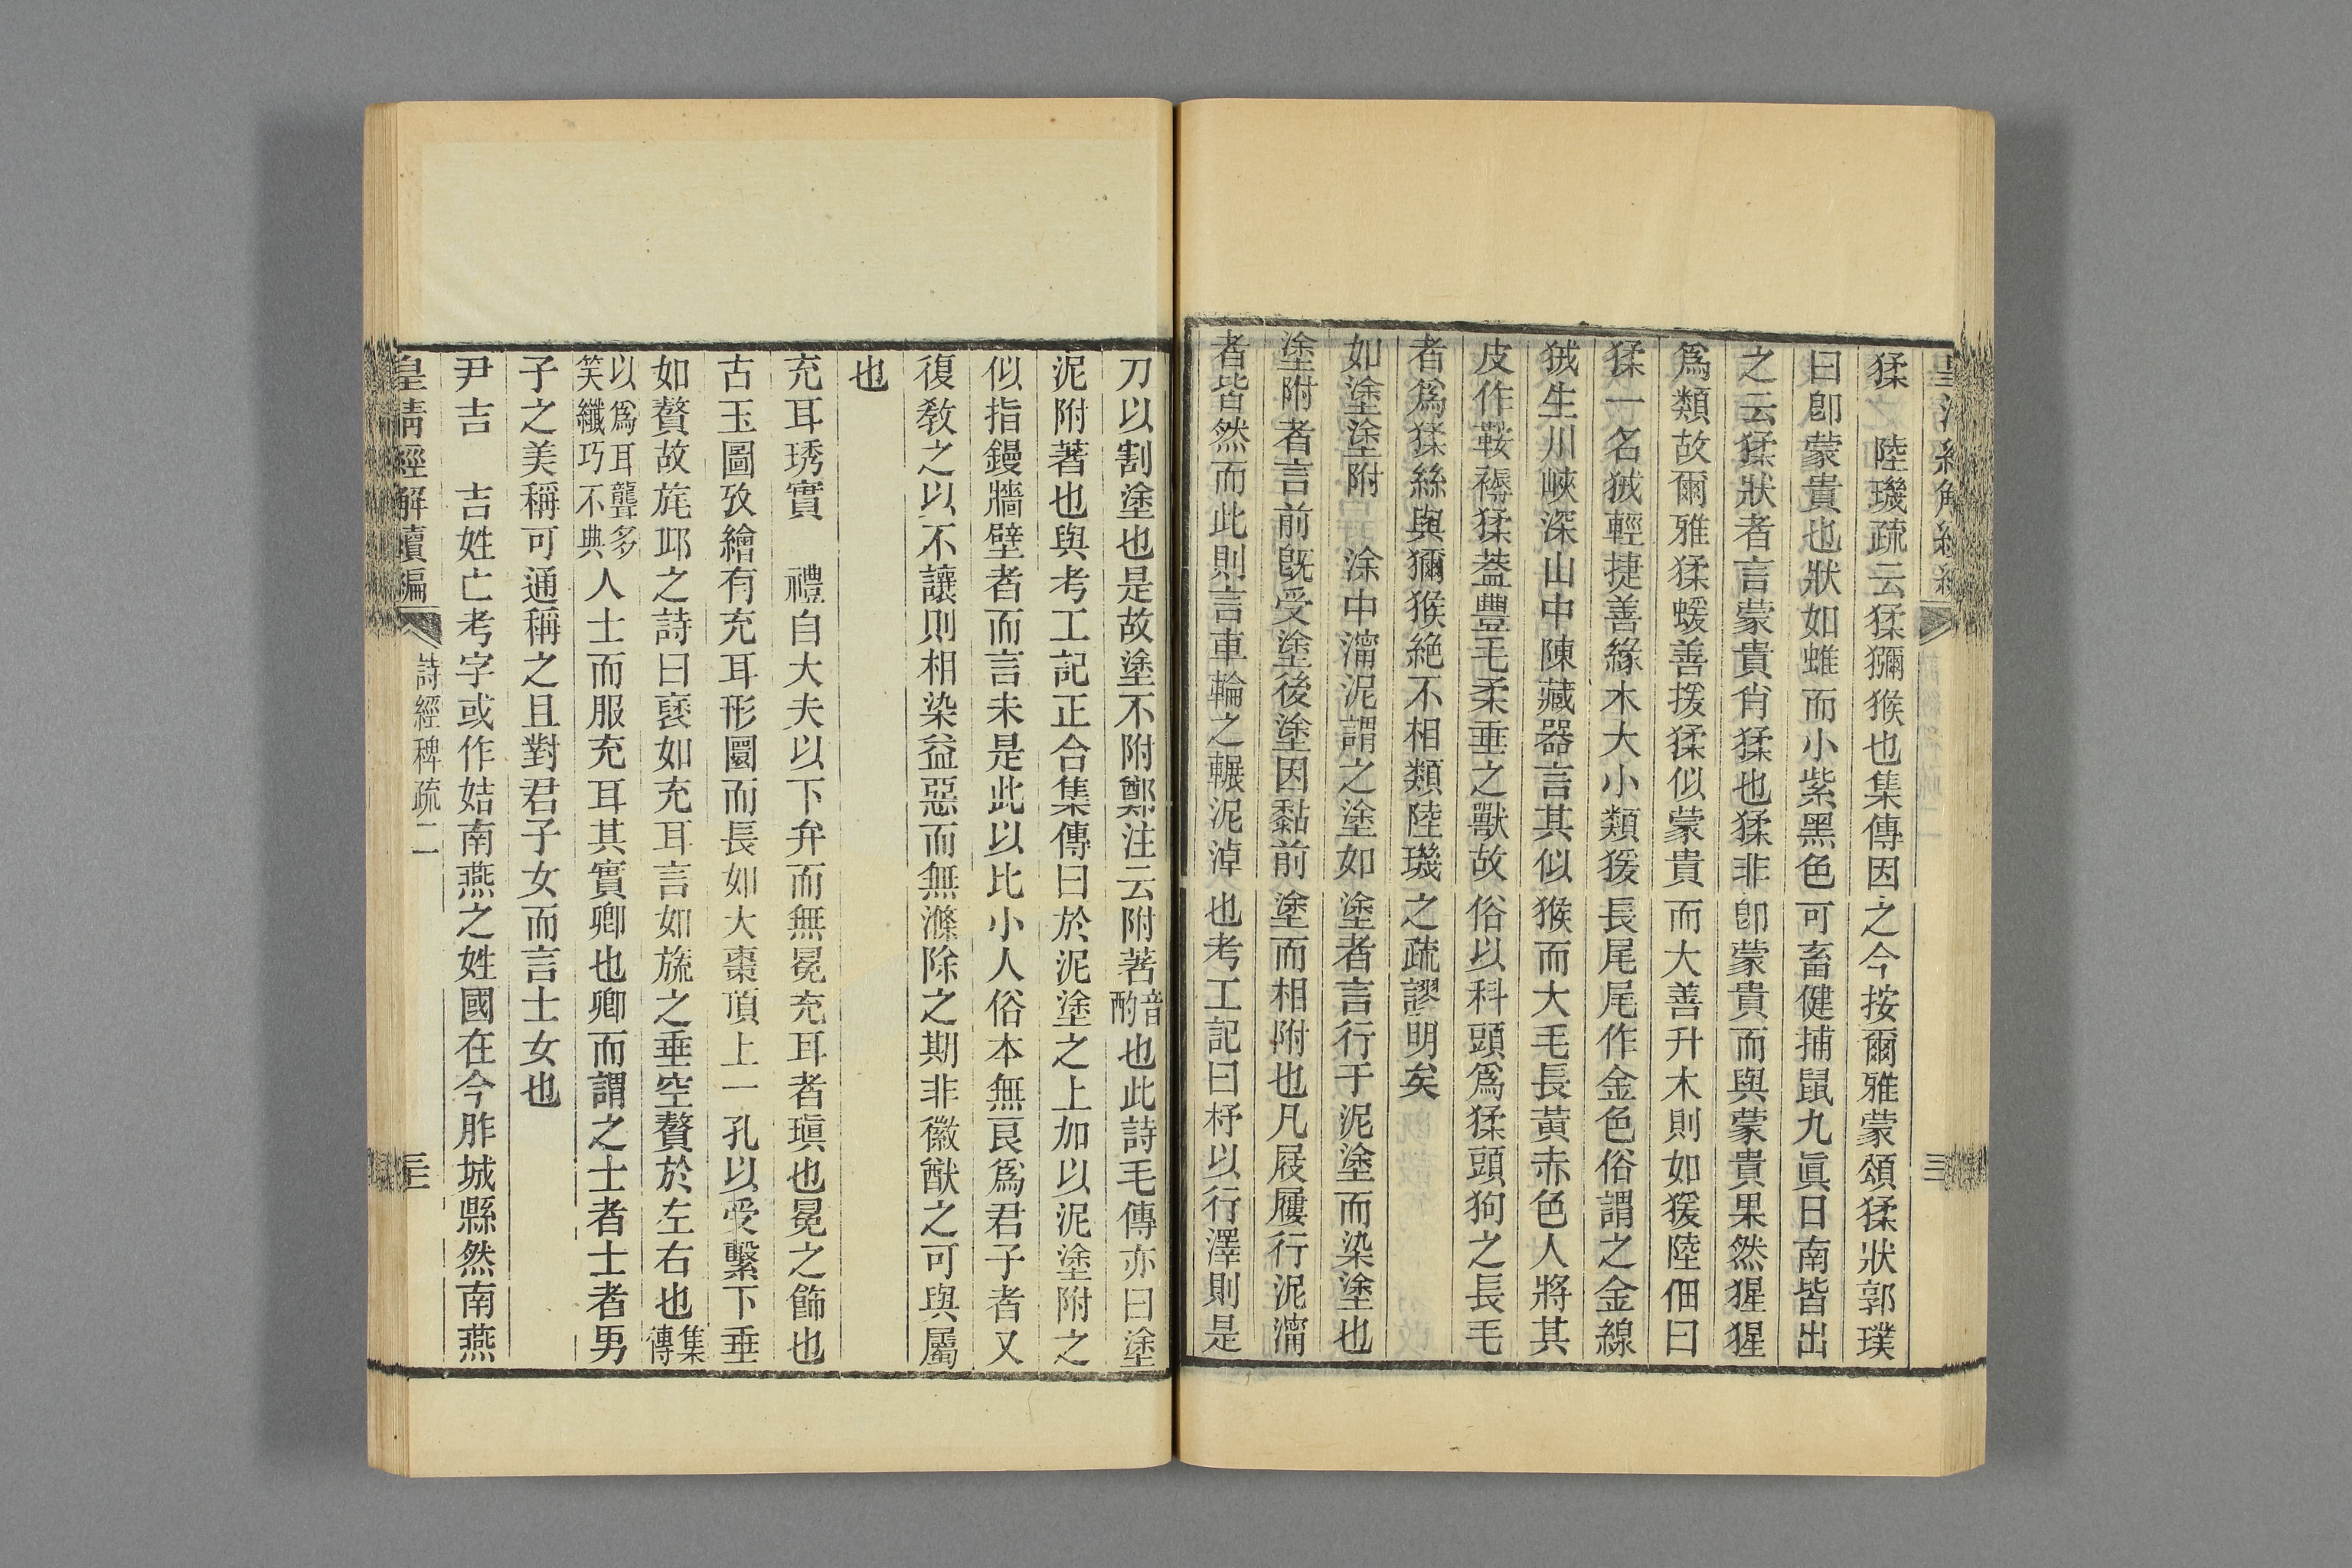 猱　陸璣疏云猱獼猴也集傳因之今按爾雅蒙頌猱狀郭璞
曰卽蒙貴也狀如蜼而小紫黑色可畜健捕鼠九眞日南皆出
之云猱狀者言蒙貴肖猱也猱非卽蒙貴而與蒙貴果然猩猩
爲類故爾雅猱蝯善援猱似蒙貴而大善升木則如猨陸佃曰
猱一名狨輕捷善緣木大小類猨長尾尾作金色俗謂之金線
狨生川峽深山中陳藏器言其似猴而大毛長黃赤色人將其
皮作鞍褥猱葢豐毛柔垂之獸故俗以科頭爲猱頭狗之長毛
者爲猱絲與獼猴絶不相類陸璣之疏謬明矣
如塗塗附　涂中澝泥謂之塗如塗者言行于泥塗而染塗也
塗附者言前旣受塗後塗因黏前塗而相附也凡屐屨行泥澝
者皆然而此則言車輪之輾泥淖也考工記曰杼以行澤則是
刀以割塗也是故塗不附鄭注云附著音酌也此詩毛傳亦曰塗
泥附著也與考工記正合集傳曰於泥塗之上加以泥塗附之
似指鏝牆壁者而言未是此以比小人俗本無良爲君子者又
復敎之以不讓則相染益惡而無滌除之期非徽猷之可與屬
也
充耳琇實　禮自大夫以下弁而無冕充耳者瑱也冕之飾也
古玉圖攷繪有充耳形圜而長如大棗頂上一孔以受繫下垂
如贅故旄邱之詩曰褎如充耳言如旒之垂空贅於左右也集傳
以爲耳聾多笑纖巧不典人士而服充耳其實卿也卿而謂之士者士者男
子之美稱可通稱之且對君子女而言士女也
尹吉　吉姓亡考字或作姞南燕之姓國在今胙城縣然南燕
皇淸經解續編
詩經稗疏二
三